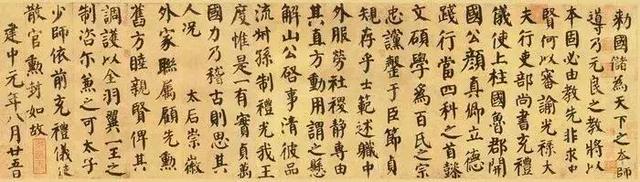 勅國儲為天下之本師
導乃元良之教將以
本固必由教先非求中
賢何以審諭光祿大
夫行吏部尚書充禮
儀使上柱國魯郡開
國公顏真卿立德
踐行當四科之首懿
文碩學為百氏之宗
忠讜罄于臣節貞
規存乎士範述職中
外服勞社稷靜專由
其直方動用謂之懸
解山公啓事清彼品
流叔孫制禮光我王
度惟是一有實貞萬
國力乃稽古則思其
人況 太后崇徽
外家聯屬顧先勳
舊方睦親賢俾其
調護以全羽翼一王之
制咨爾兼之可太子
少師依前充禮儀使
散官勳封如故
建中元年八月廿五日